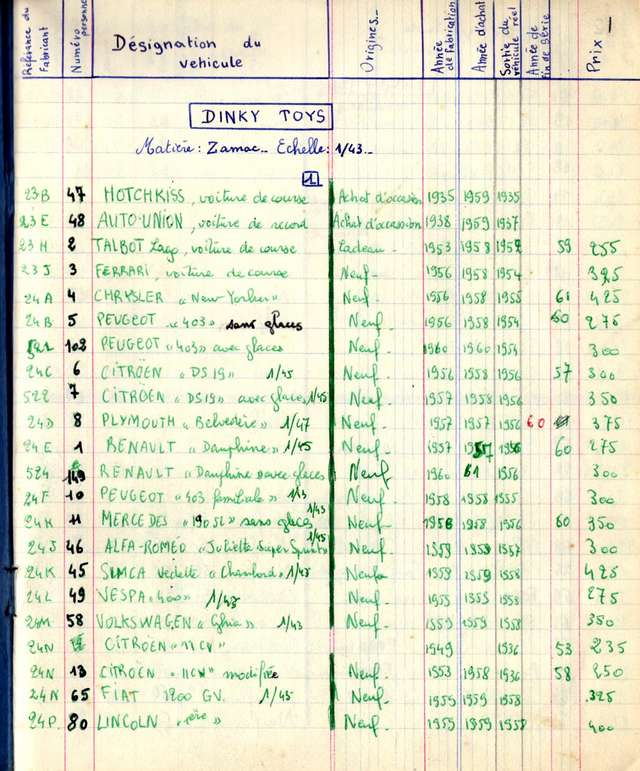 Référence du Fabricant | Numéro personnel | Désignation du vehicule | Origines | Année de fabrication | Année d'achat | Sortie du véhicule réel | Année de fin de série | Prix | 1
DINKY TOYS
Matière : Zamac - Echelle : 1/43
1
23B 47 HOTCHKISS, voiture de course Achat d'occasion 1935 1959 1935
23E 48 AUTO-UNION, voiture de record Achat d'occasion 1938 1959 1937
23H 2 TALBOT Lago, voiture de course Cadeau 1953 1958 1952 59 255
23J 3 FERRARI, voiture de course Neuf 1956 1958 1954 325
24A 4 CHRYSLER "New Yorker" Neuf 1956 1958 1955 61 425
24B 5 PEUGEOT "403" sans glaces Neuf 1956 1958 1954 60 275
102 PEUGEOT "403" avec glaces Neuf 1960 1960 1954 300
24C 6 CITROËN "DS19" 1/45 Neuf 1956 1958 1956 57 300
522 7 CITROËN "DS19" avec glaces 1/45 Neuf 1957 1958 1956 350
24D 8 PLYMOUTH "Belvedère" 1/47 Neuf 1957 1957 1956 60 375
24E 1 RENAULT "Dauphine" 1/45 Neuf 1957 1957 1956 60 275
524 149 RENAULT "Dauphine" avec glaces Neuf 1960 61 1956 300
24F 10 PEUGEOT "403 familiale" 1/43 Neuf 1958 1958 1955 300
24H 11 MERCEDES "190SL" sans glaces 1/43 Neuf 1958 1958 1956 60 350
24J 46 ALFA-ROMÉO "Juliette Super Sprint" 1/45 Neuf 1959 1959 1957 300
24K 45 SIMCA Vedette "Chambord" 1/43 Neuf 1959 1959 1958 425
24L 49 VESPA "400" 1/43 Neuf 1959 1959 1958 275
24M 58 VOLKSWAGEN "Ghia" 1/43 Neuf 1959 1959 1958 350
24N CITROËN "11CV" 1949 1936 53 235
24N 13 CITROËN "11CV" modifiée Neuf 1953 1958 1936 58 250
24N 65 FIAT 1200 GV. 1/45 Neuf 1959 1959 1958 325
24P 80 LINCOLN "1ère" Neuf 1959 1959 1958 400